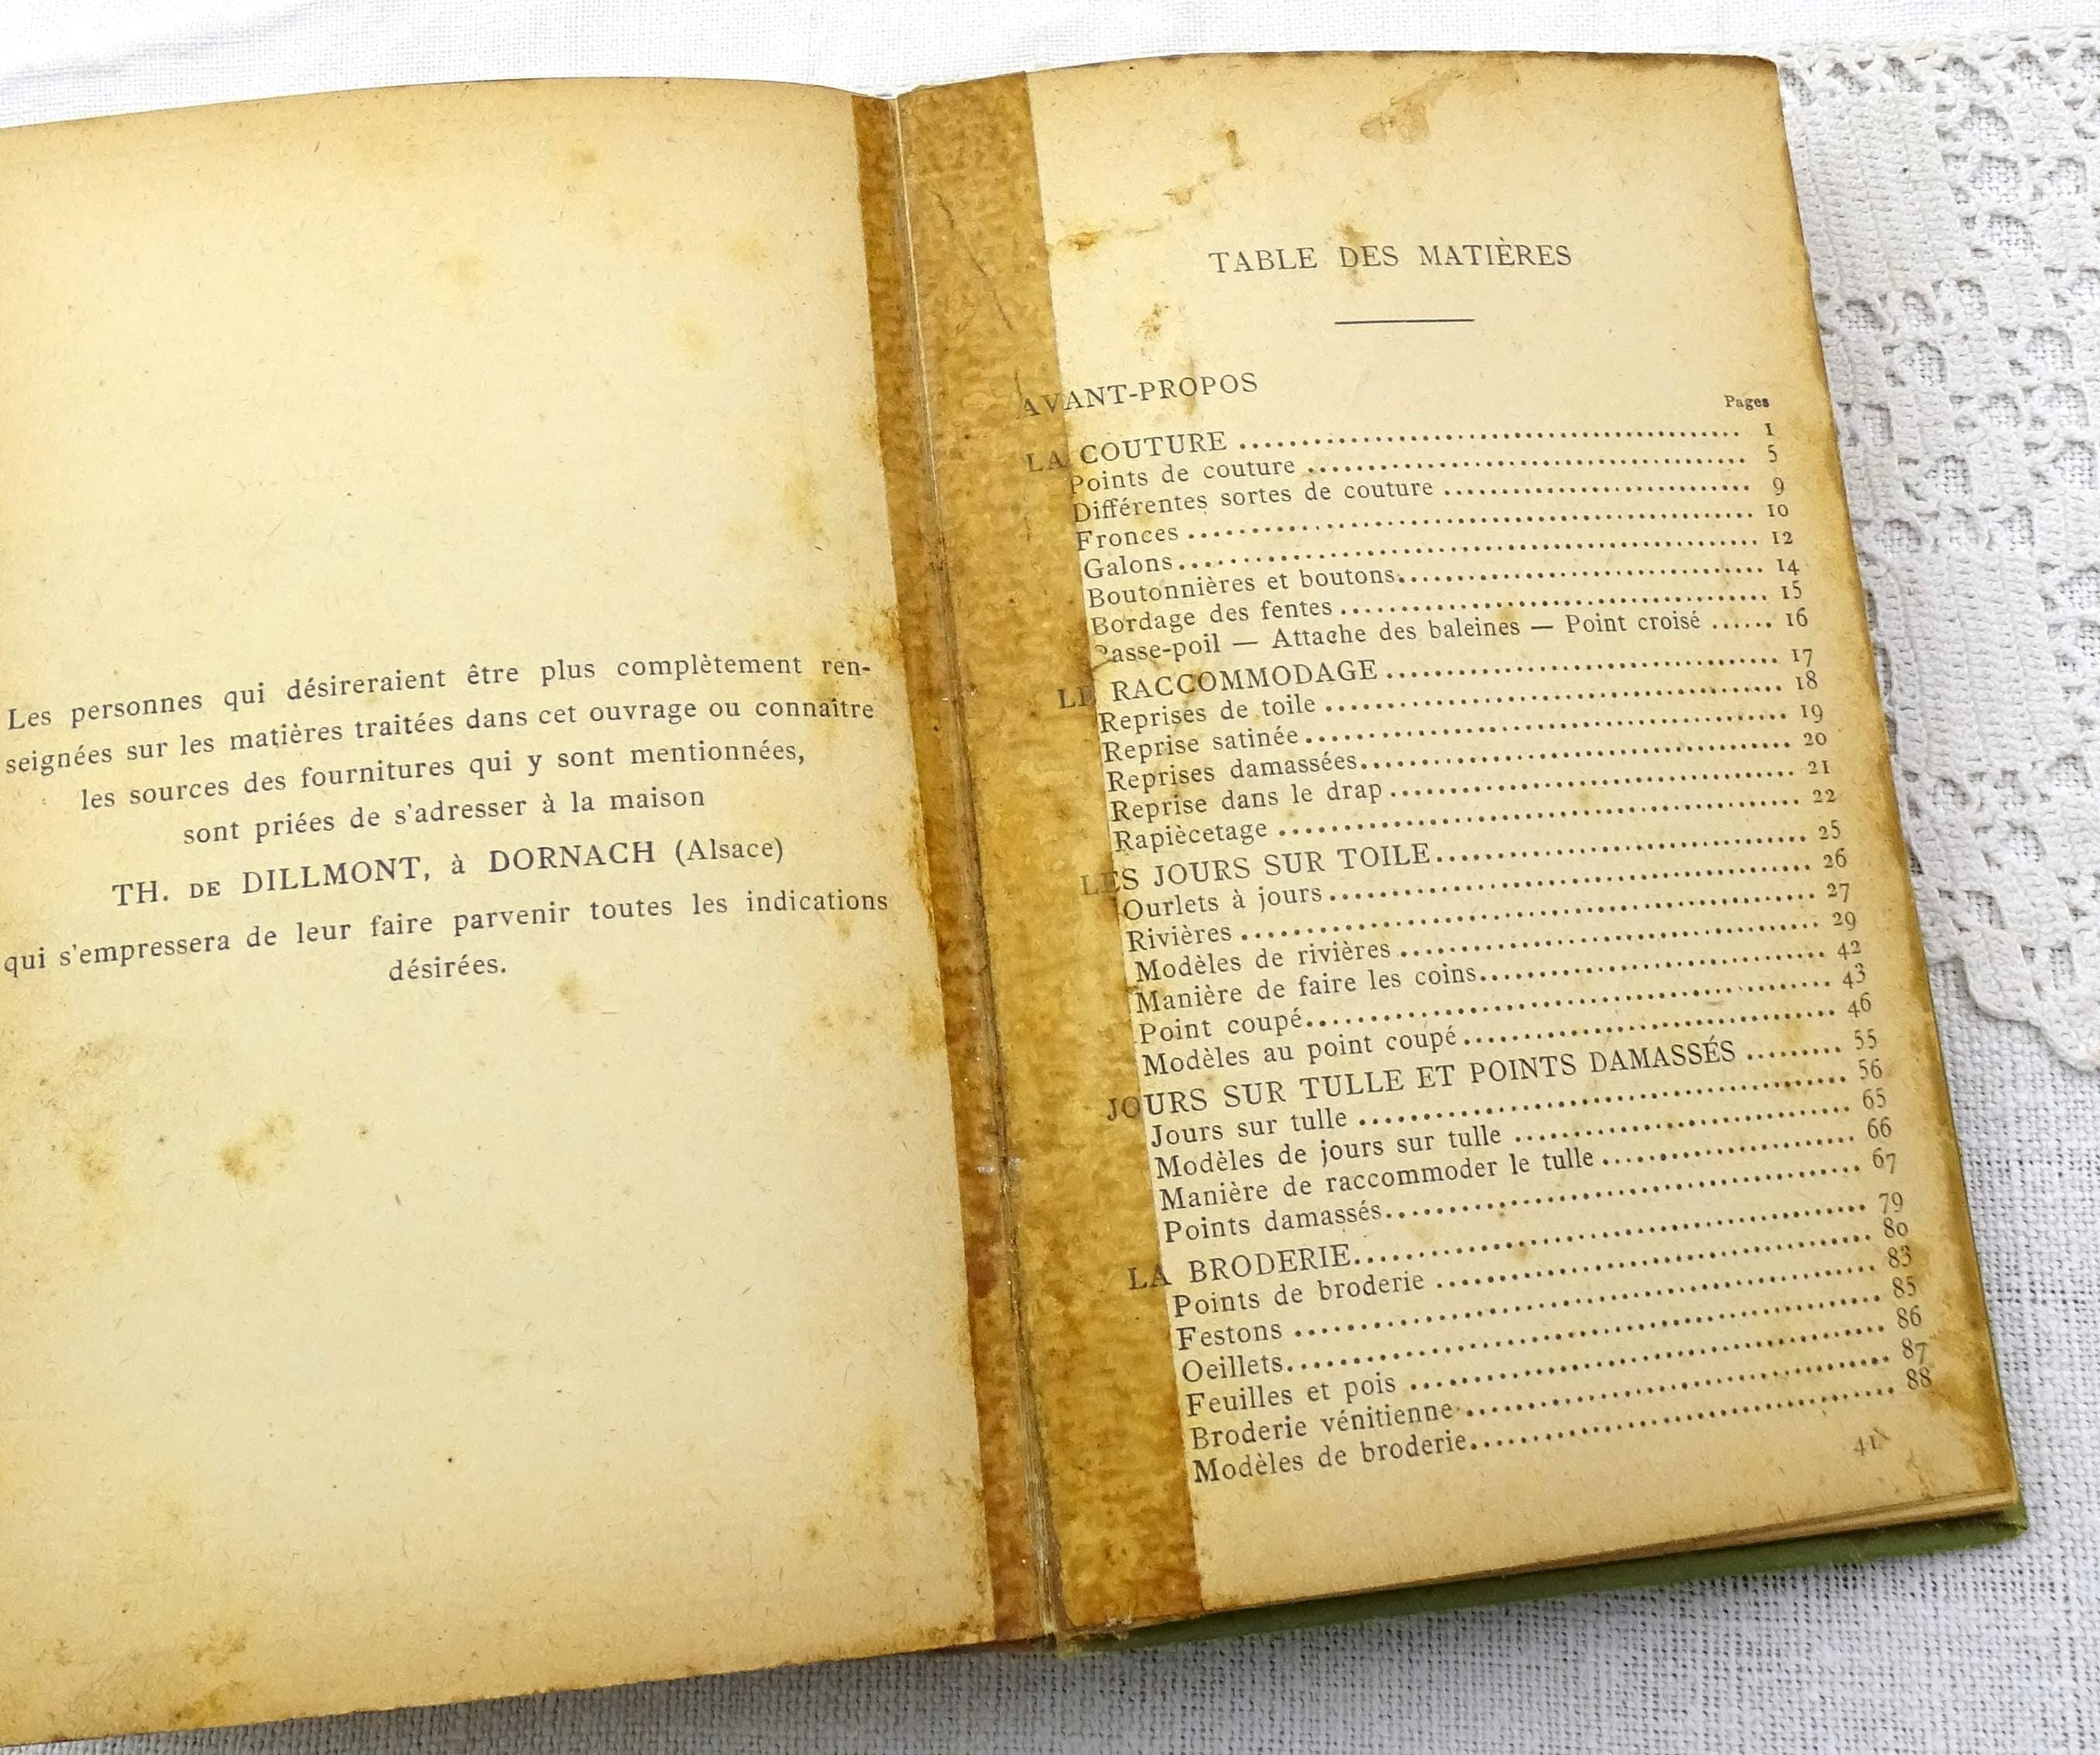 Les personnes qui désireraient être plus complètement ren-
seignées sur les matières traitées dans cet ouvrage ou connaître
les sources des fournitures qui y sont mentionnées,
sont priées de s'adresser à la maison
TH. DE DILLMONT, à DORNACH (Alsace)
qui s'empressera de leur faire parvenir toutes les indications
désirées.
TABLE DES MATIÈRES
AVANT-PROPOS
Pages
LA COUTURE ........ 1
Points de couture ........ 5
Différentes sortes de couture ........ 9
Fronces ........ 10
Galons ........ 12
Boutonnières et boutons ........ 14
Bordage des fentes ........ 15
Passe-poil — Attache des baleines — Point croisé ...... 16
LE RACCOMMODAGE ........ 17
Reprises de toile ........ 18
Reprise satinée ........ 19
Reprises damassées ........ 20
Reprise dans le drap ........ 21
Rapiècetage ........ 22
LES JOURS SUR TOILE ........ 25
Ourlets à jours ........ 26
Rivières ........ 27
Modèles de rivières ........ 29
Manière de faire les coins ........ 42
Point coupé ........ 43
Modèles au point coupé ........ 46
JOURS SUR TULLE ET POINTS DAMASSÉS ......... 55
Jours sur tulle ........ 56
Modèles de jours sur tulle ........ 65
Manière de raccommoder le tulle ........ 66
Points damassés ........ 67
LA BRODERIE ........ 79
Points de broderie ........ 80
Festons ........ 83
Oeillets ........ 85
Feuilles et pois ........ 86
Broderie vénitienne ........ 87
Modèles de broderie ........ 88
41